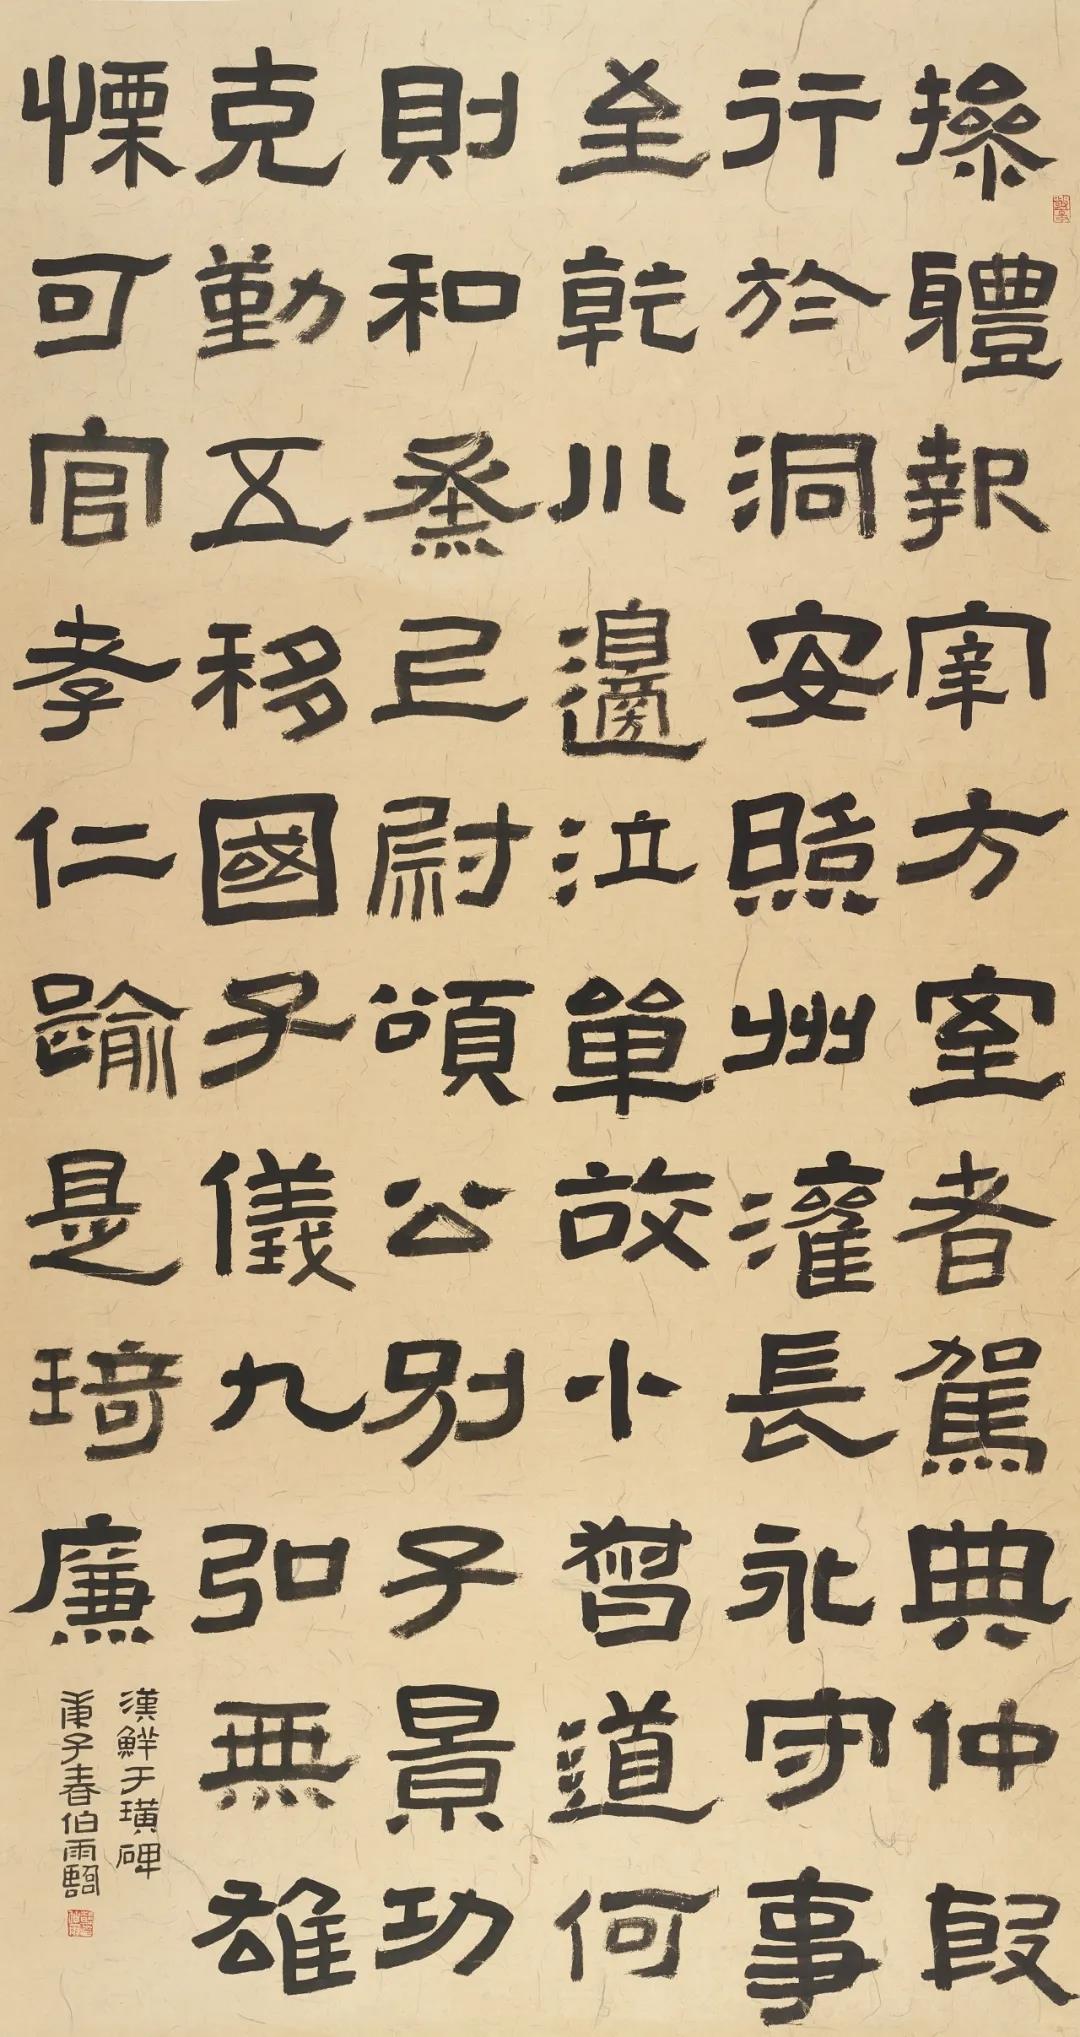 操體報宰方室者駕典仲叚
行於洞安照州灌長永守事
至乾川邊泣單故小晳道何
則和烝已尉頌公別子景功
克勤五移國子儀九弘無雄
慄可官孝仁踰是琦廉
漢鮮于璜碑
庚子春伯雨臨